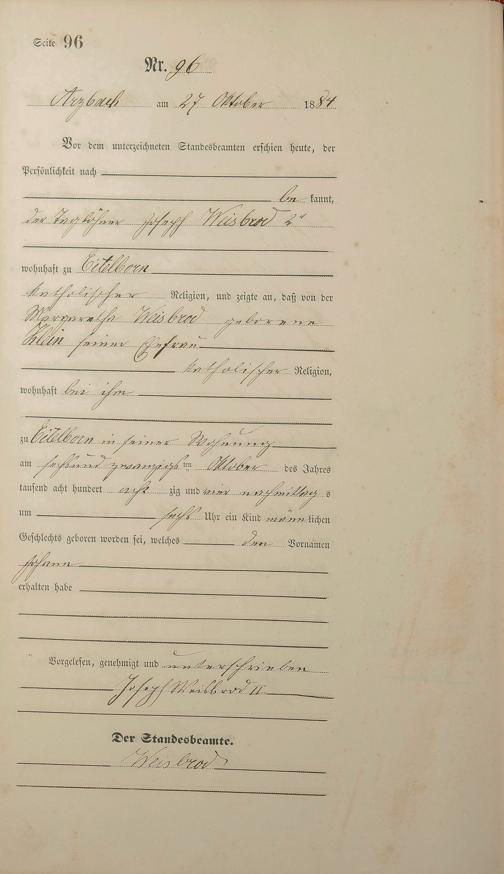 Seite 96
Nr. 96
Arzbach am 27 Oktober 1884
Vor dem unterzeichneten Standesbeamten erschien heute, der
Persönlichkeit nach
be kannt,
der Taglöhner Joseph Weisbrod 2r
wohnhaft zu Eitelborn
katholischer Religion, und zeigte an, daß von der
Margaretha Weisbrod geborene
Klein seiner Ehefrau
katholischer Religion,
wohnhaft bei ihm
zu Eitelborn in seiner Wohnung
am sechsund zwanzigsten Oktober des Jahres
tausend acht hundert acht zig und vier nachmittags
um sechs Uhr ein Kind männlichen
Geschlechts geboren worden sei, welches den Vornamen
Johann
erhalten habe
Vorgelesen, genehmigt und unterschrieben
Joseph Weisbrod II
Der Standesbeamte.
Weisbrod